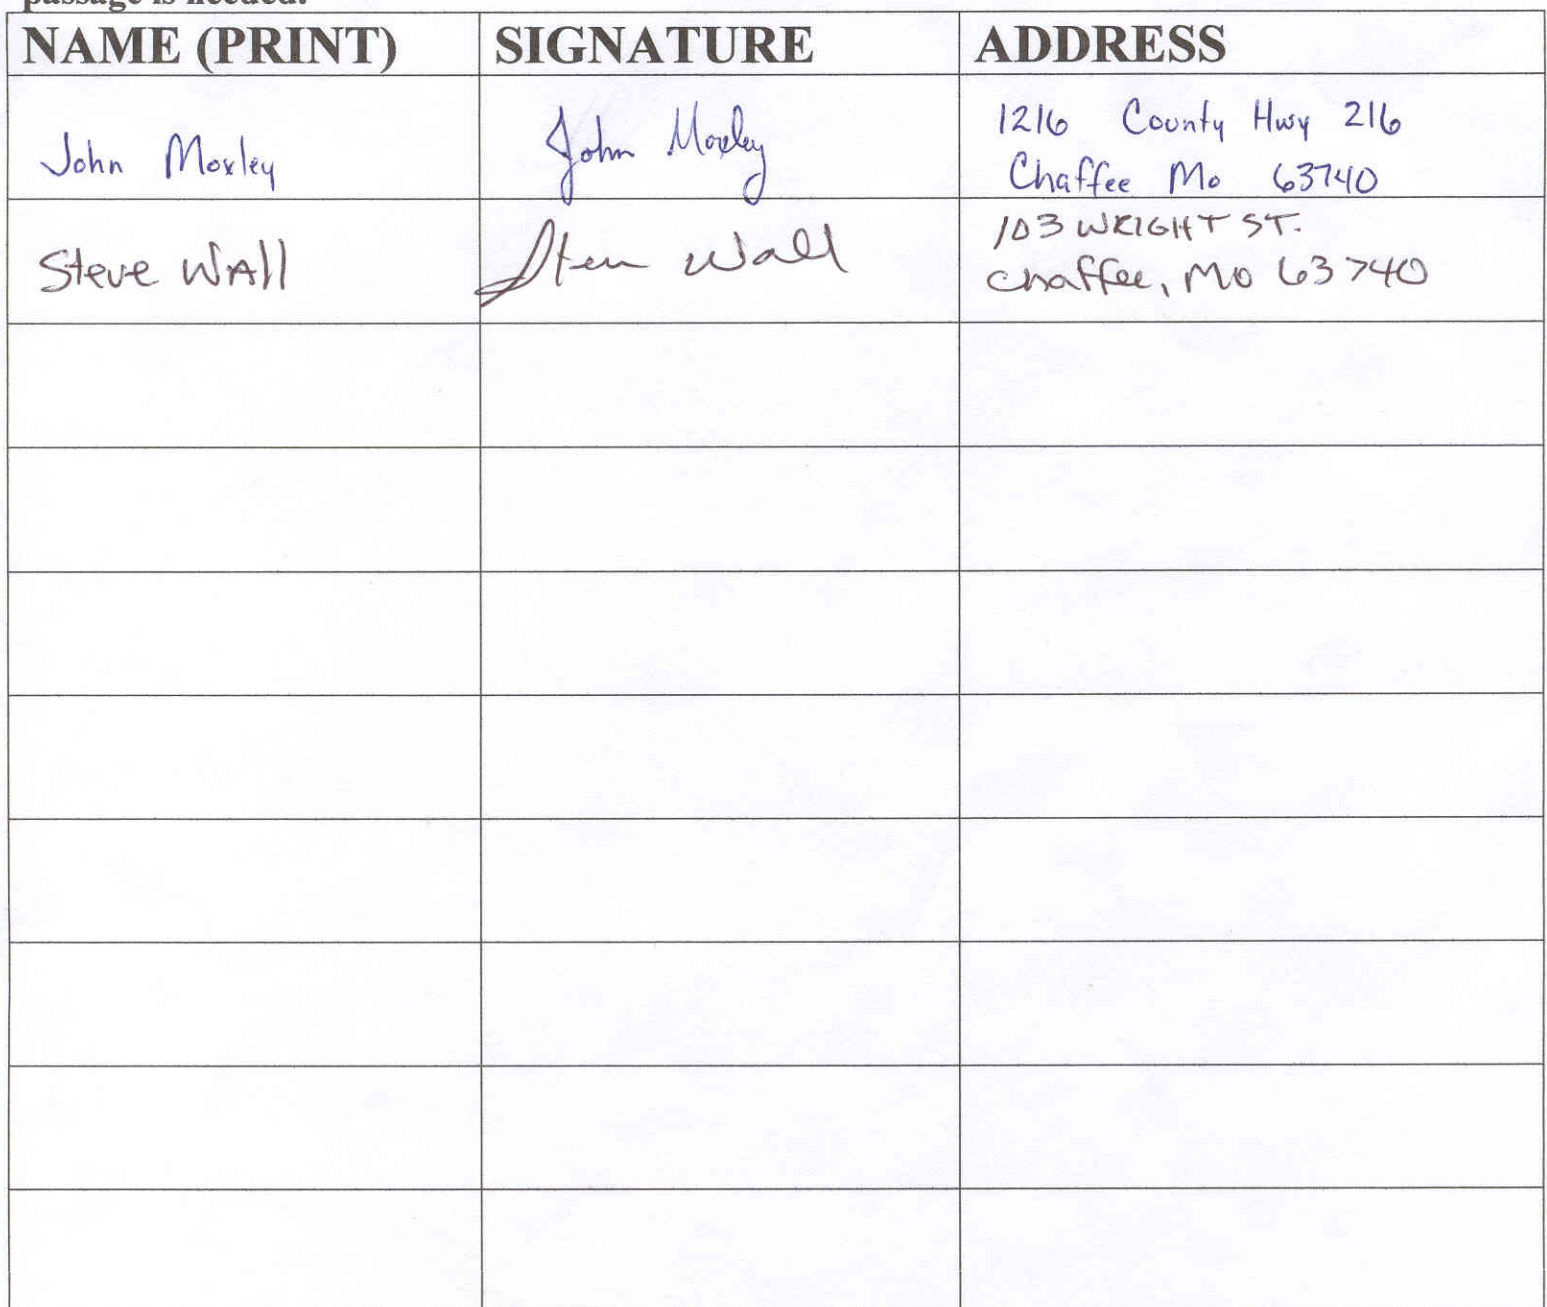 passage is needed.
NAME (PRINT) SIGNATURE ADDRESS
John Moxley John Moxley 1216 County Hwy 216
Chaffee Mo 63740
Steve WAll Steve Wall 103 WRIGHT ST.
Chaffee, MO 63740